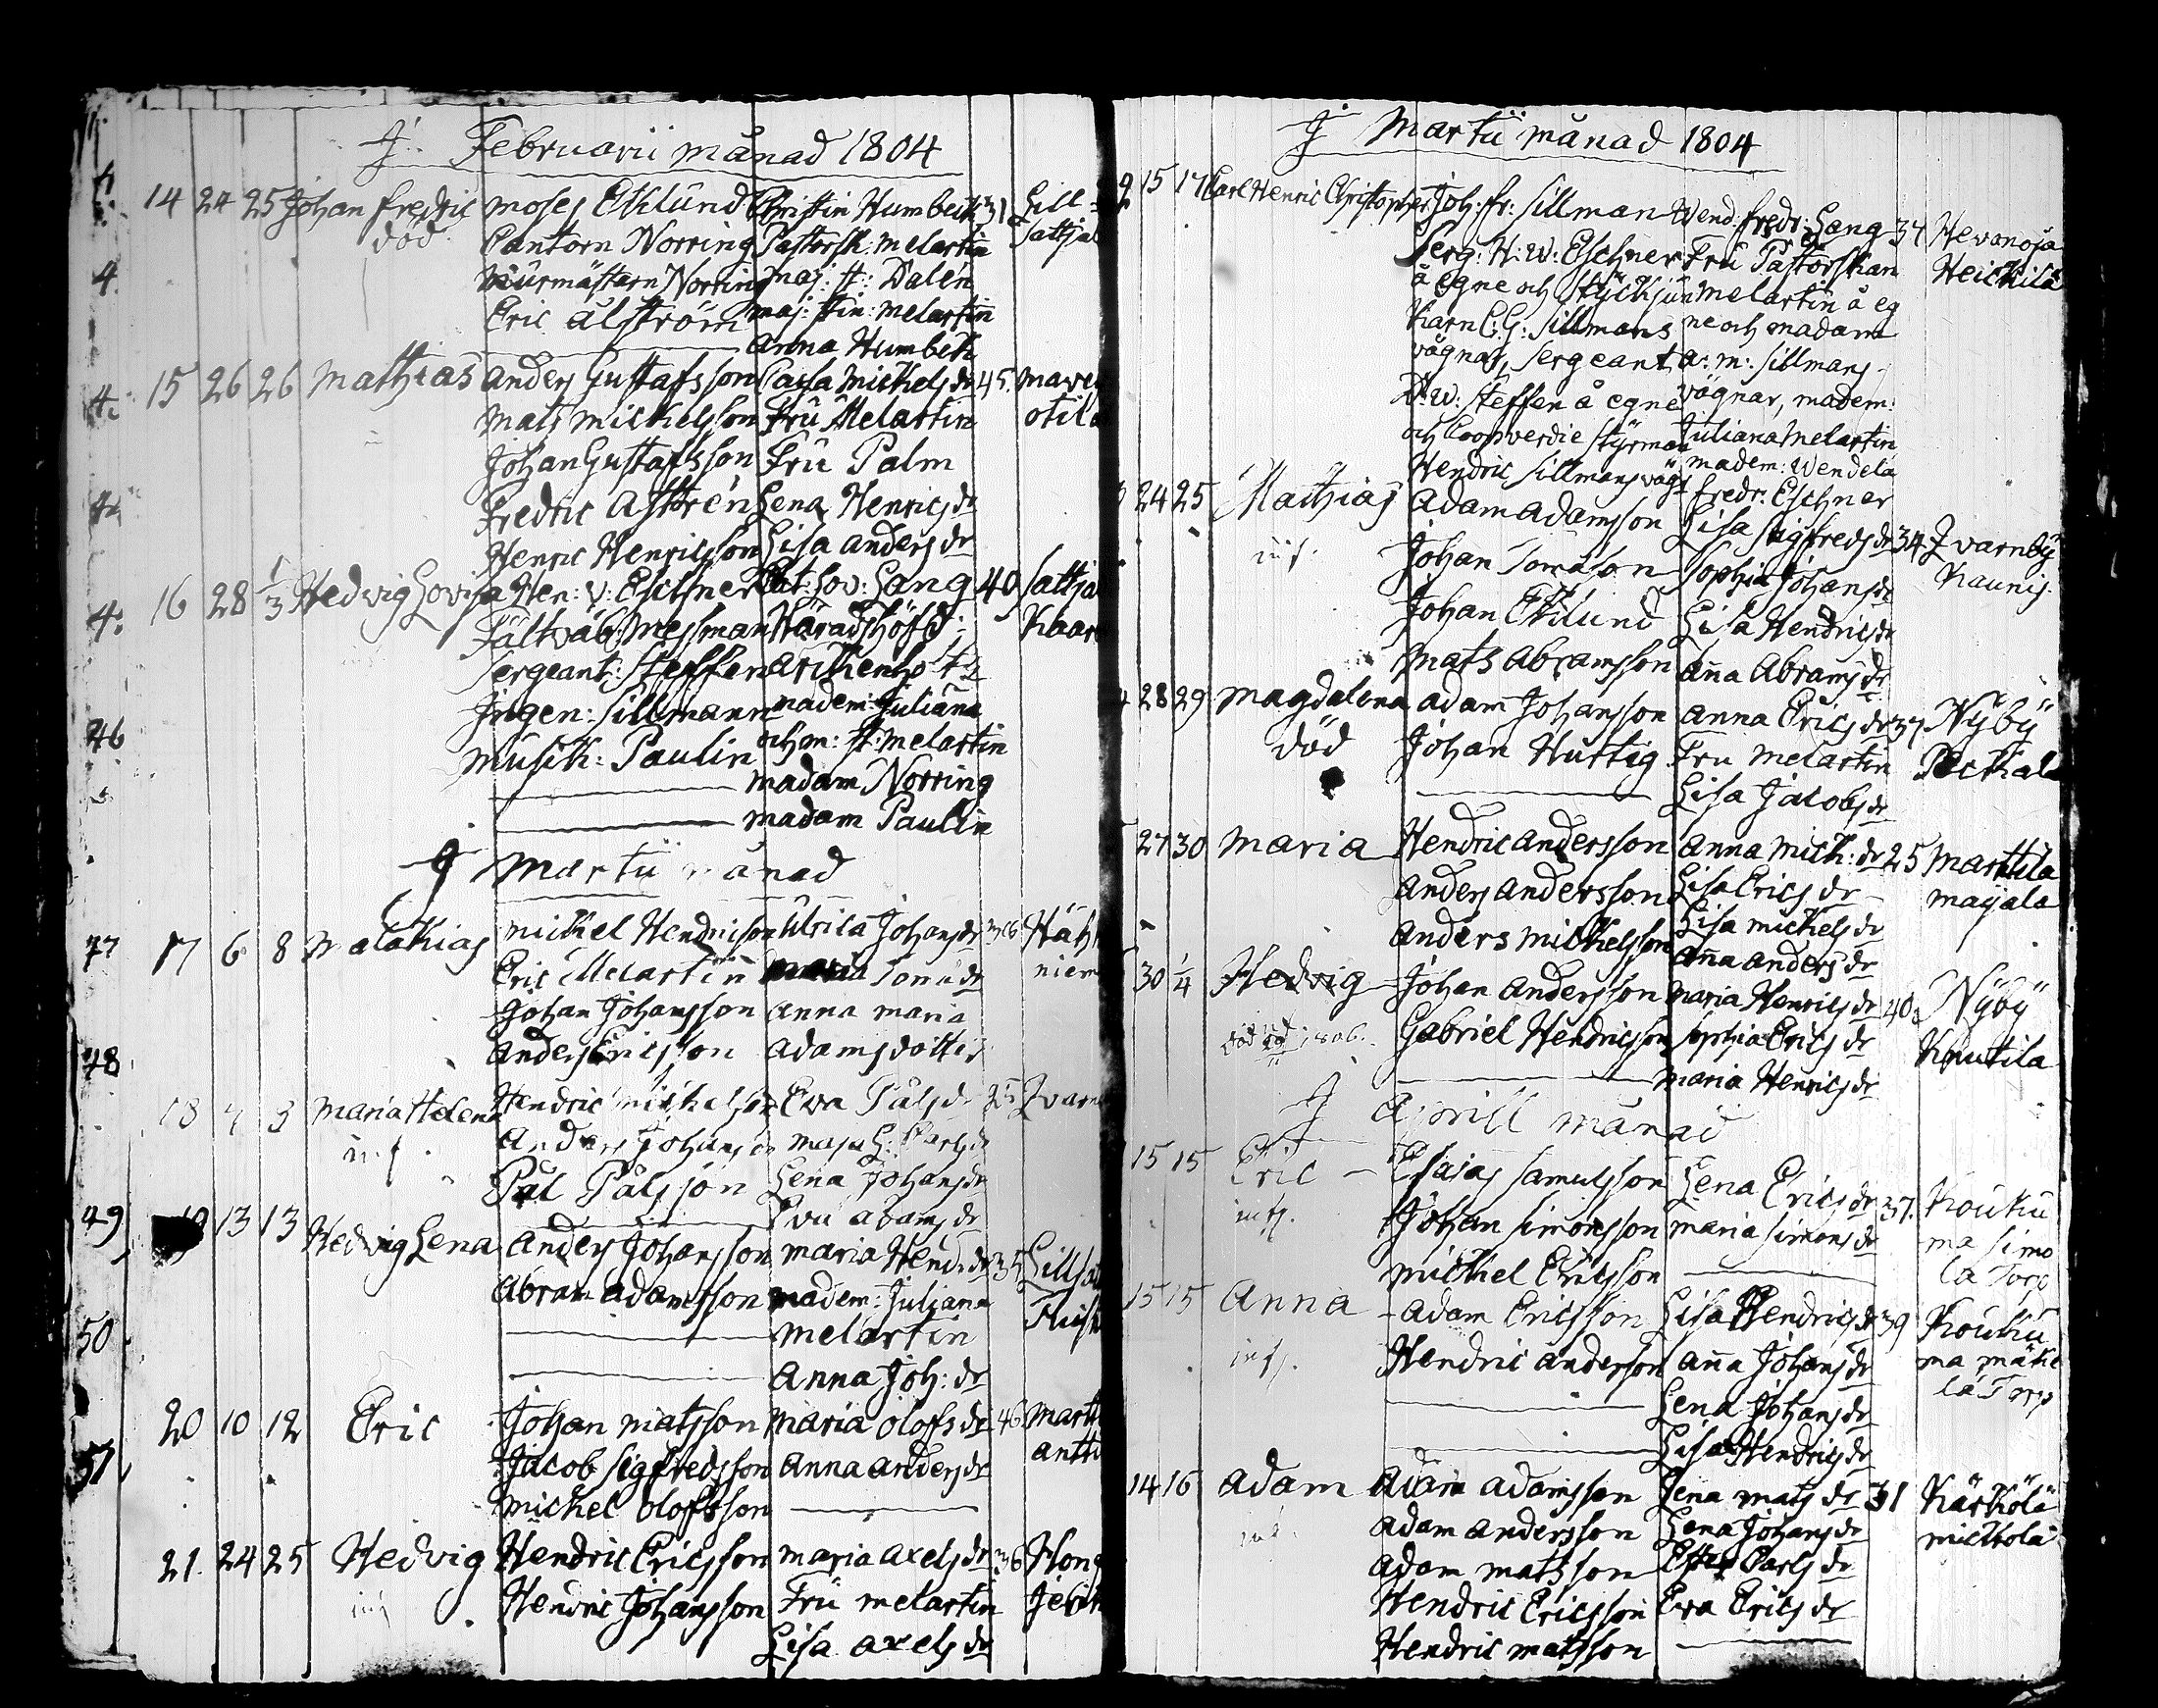 J. Februarii månad 1804
14 24 25 Johan Fredric Moses Eklund Christin Humbeck 31 Lill
död Cantorn Norring Pastorsk: Melartin Sattja
Murmästarn Norring Maj: St: Dalén
Eric Alström Maj: Stin: Melartin
Anna Humbeck
15 26 26 Mathias Anders Gustafsson Caisa Mickels dr 45
Mats Mickelsson Fru Melartin otila
Johan Gustafsson Fru Palm
Fredric Astrén Lena Henrics dr
Henric Henricsson Lisa Anders dr
16 28 1/3 Hedvig Lovisa Hen: v: Eschner Cat: Lov: Lang 40 Sattja
Fältväb: Messman Häradshöfd: Kaar
Sergeant: Steffen Arckenholtz
Ingen: Sillmann madem: Juliana
Musik: Paulin och m: St: Melartin
46 madam Norring
madam Paulin
J Martii månad
17 6 8 Malakias Mickel Hendricson Ulrica Johans dr 36 Häh
Eric Melartin Maria Tom: dr niem
Johan Johansson Anna Maria
Anders Ericsson Adams dotter
48
18 4 5 Maria Helena Hendric Mickelson Eva Påls dr Qvarn
inf. Anders Johanson Maja L: Carls dr
Pål Pålsson Lena Johans dr
Eva Adams dr
49 13 13 Hedvig Lena Anders Johansson Maria Hend: dr 35 Lillsa
Abram Adamsson madem: Juliana
50 Melartin
Anna Joh: dr
20 10 12 Eric Johan Matsson Maria Olofs dr 46 Martt
51 Jacob Sigfredsson Anna Anders dr antti
Michel Olofsson
21. 24 25 Hedvig Hendric Ericsson Maria Axels dr 36 Hong
inf Hendric Johansson Fru Melartin
Lisa Axels dr
J Martii månad 1804
15 17 Carl Henric Christopher Joh: Fr: Sillman Wend: Fredr: Lang 34 Hevonoja
Serg: H: W: Eschner Fru Pastorskan Heickilä
å egne och Styckjun Melartin å eg
karn C: G: Sillmans ne och madam
vägnar, Sergeant A: M: Sillmans
D: W: Steffen å egne vägnar, madem:
och Coopverdie Styrman Juliana Melartin
Hendric Sillmans vägr madem: Wendela
24 25 Mathias Adam Adamsson Fredr: Eschner
inf. Johan Tomason Lisa Sigfreds dr 34 Qvarnby
Johan Eklund Sophia Johans dr Kaunis
Lisa Hendrics dr
Mats Abramsson Anna Abrams dr
28 29 Magdalena Adam Johansson Anna Erics dr 37 Nyby
död Johan Hurtig Fru Melartin
Lisa Jacobs dr
27 30 Maria Hendric Andersson Anna Mick: dr 25 Marttila
Anders Andersson Lisa Erics dr majala
Anders Mickelsson Lisa Mickels dr
Anna Anders dr
30 1/4 Hedvig Johan Andersson Maria Henrics dr 40. Nyby
död Gabriel Hendricson Sophia Erics dr Knutila
Maria Henrics dr
J Aprill månad
15 15 Eric Esaias Samulsson Lena Erics dr 37. Kouku
inf. Johan Simonsson Maria Simons dr ma Simo
Mickel Ericsson la Torp
15 15 Anna Adam Ericsson Lisa Hendrics dr 39 Kouku
inf. Hendric Anderson Anna Johans dr ma mäke
Lena Johans dr lä Torp
Lisa Hendrics dr
14 16 Adam Adam Adamsson Lena Mats dr 31 Kärkölä
Adam Andersson Lena Johans dr mickola
Adam Matsson Ester Carls dr
Hendric Ericsson Eva Erics dr
Hendric Matsson